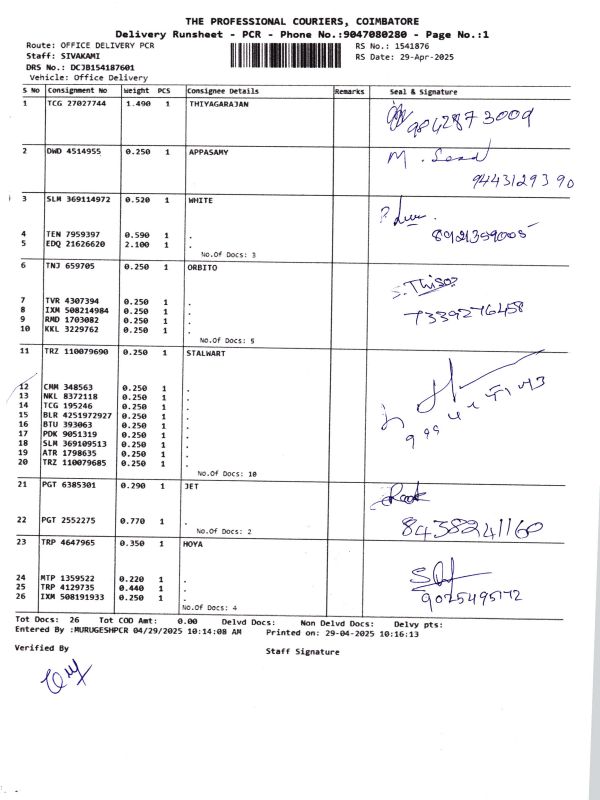 THE PROFESSIONAL COURIERS, COIMBATORE
Delivery Runsheet - PCR - Phone No.:9047080280 - Page No.:1
Route: OFFICE DELIVERY PCR RS No.: 1541876
Staff: SIVAKAMI RS Date: 29-Apr-2025
DRS No.: DCJB154187601
Vehicle: Office Delivery
S No Consignment No Weight PCS Consignee Details Remarks Seal & Signature
1 TCG 27027744 1.490 1 THIYAGARAJAN
9842873009
2 DWD 4514955 0.250 1 APPASAMY
9443129390
3 SLM 369114972 0.520 1 WHITE
4 TEN 7959397 0.590 1 .
5 EDQ 21626620 2.100 1 .
No.Of Docs: 3
6 TNJ 659705 0.250 1 ORBITO
7339276458
7 TVR 4307394 0.250 1 .
8 IXM 508214984 0.250 1 .
9 RMD 1703082 0.250 1 .
10 KKL 3229762 0.250 1 .
No.Of Docs: 5
11 TRZ 110079690 0.250 1 STALWART
12 CMM 348563 0.250 1 .
13 NKL 8372118 0.250 1 .
14 TCG 195246 0.250 1 .
15 BLR 4251972927 0.250 1 .
16 BTU 393063 0.250 1 .
17 PDK 9051319 0.250 1 .
18 SLM 369109513 0.250 1 .
19 ATR 1798635 0.250 1 .
20 TRZ 110079685 0.250 1 .
No.Of Docs: 10
21 PGT 6385301 0.290 1 JET
22 PGT 2552275 0.770 1 .
8438241160
No.Of Docs: 2
23 TRP 4647965 0.350 1 HOYA
24 MTP 1359522 0.220 1 .
25 TRP 4129735 0.440 1 .
26 IXM 508191933 0.250 1 .
No.Of Docs: 4
Tot Docs: 26 Tot COD Amt: 0.00 Delvd Docs: Non Delvd Docs: Delvy pts:
Entered By :MURUGESHPCR 04/29/2025 10:14:08 AM Printed on: 29-04-2025 10:16:13
Verified By Staff Signature